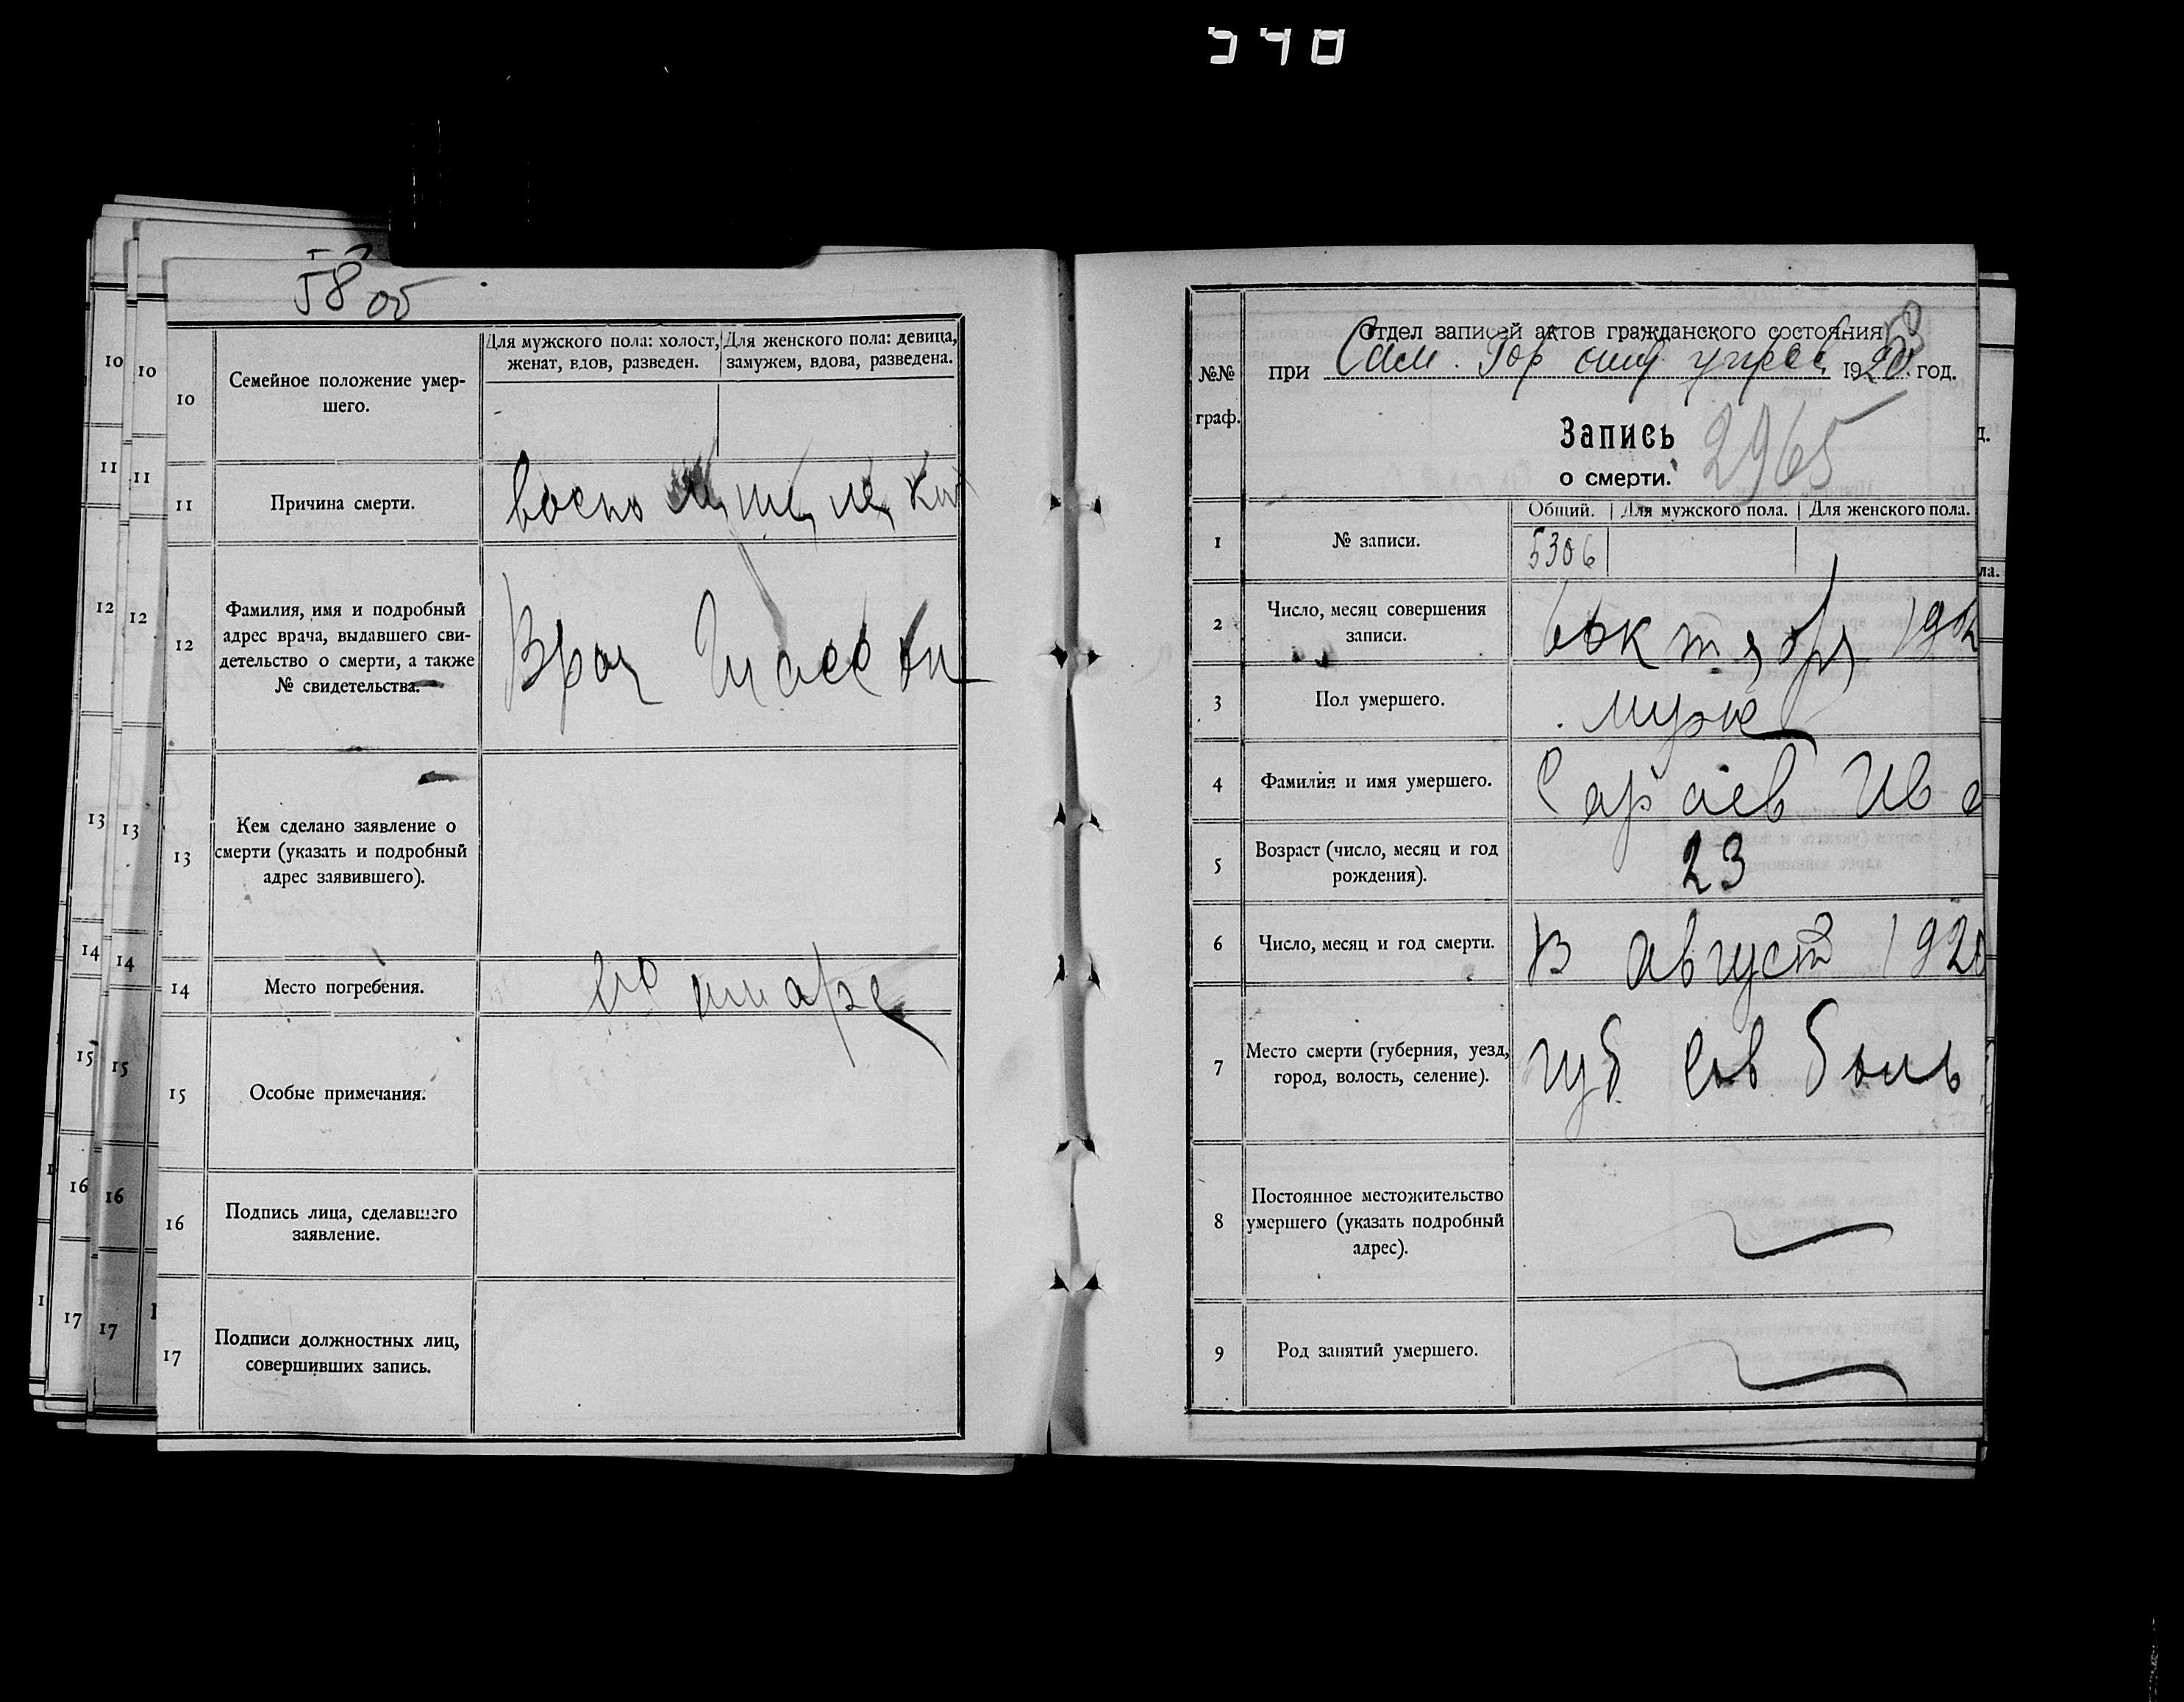 340
58 об
10
Семейное положение умер-
шего.
Для мужского пола: холост,
женат, вдов, разведен.
Для женского пола: девица,
замужем, вдова, разведена.
11
Причина смерти.
12
Фамилия, имя и подробный
адрес врача, выдавшего сви-
детельство о смерти, а также
№ свидетельства.
Врач
13
Кем сделано заявление о
смерти (указать и подробный
адрес заявившего).
14
Место погребения.
15
Особые примечания.
16
Подпись лица, сделавшего
заявление.
17
Подписи должностных лиц,
совершивших запись.
Отдел записей актов гражданского состояния
№№
граф.
при Сам. Гор 1920 год.
Запись 2965
о смерти.
Общий. Для мужского пола. Для женского пола.
1
№ записи.
5306
2
Число, месяц совершения
записи.
октября
3
Пол умершего.
муж
4
Фамилия и имя умершего.
Сараев Ива
5
Возраст (число, месяц и год
рождения).
23
6
Число, месяц и год смерти.
В август 1920
7
Место смерти (губерния, уезд,
город, волость, селение).
губ сов боль
8
Постоянное местожительство
умершего (указать подробный
адрес).
9
Род занятий умершего.